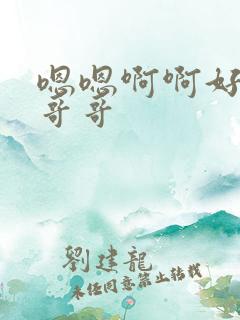 嗯嗯啊啊好
哥哥
劉建龍
未经同意禁止转载